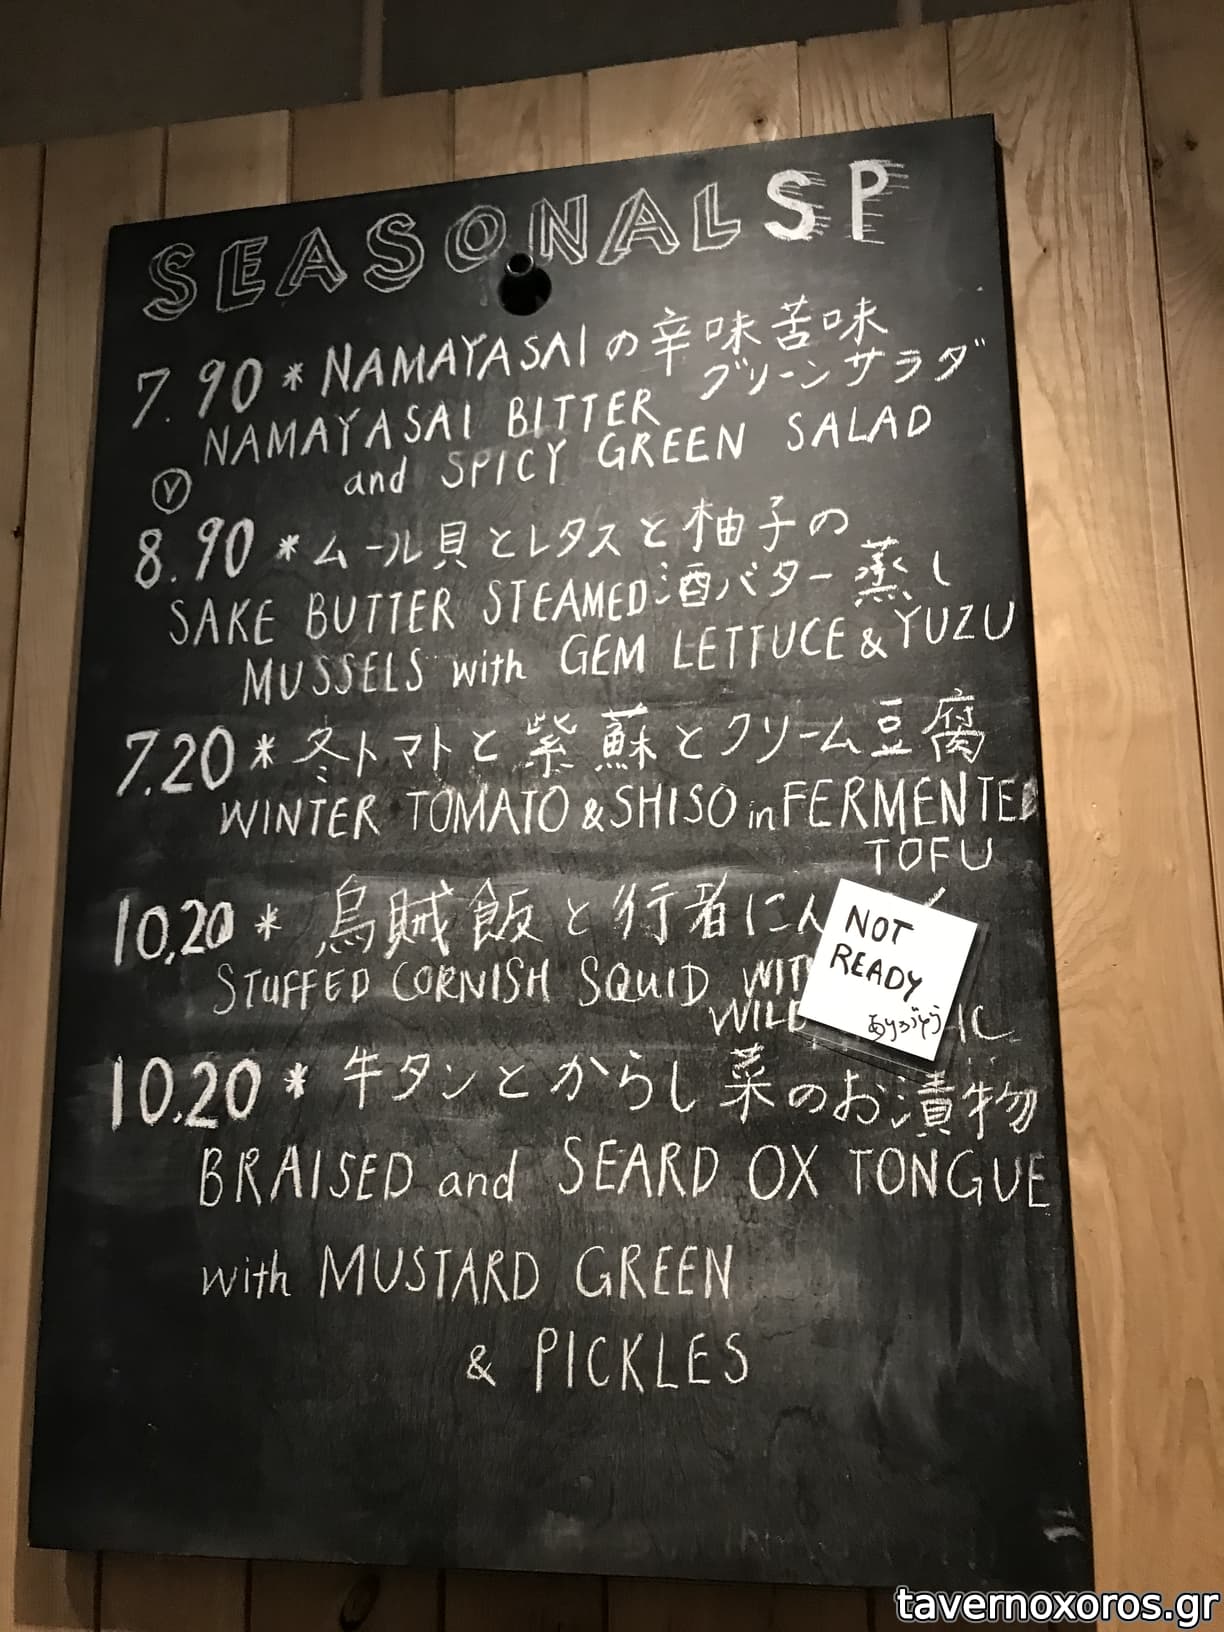 SEASONAL SP
7.90 * NAMAYASAIの辛味苦味
グリーンサラダ
NAMAYASAI BITTER
and SPICY GREEN SALAD
V
8.90 * ムール貝とレタスと柚子の
酒バター蒸し
SAKE BUTTER STEAMED
MUSSELS with GEM LETTUCE & YUZU
7.20 * 冬トマトと紫蘇とクリーム豆腐
WINTER TOMATO & SHISO in FERMENTED
TOFU
10.20 * 烏賊飯と行者にん
STUFFED CORNISH SQUID
NOT
READY
10.20 * 牛タンとからし菜のお漬物
BRAISED and SEARD OX TONGUE
with MUSTARD GREEN
& PICKLES
tavernoxoros.gr